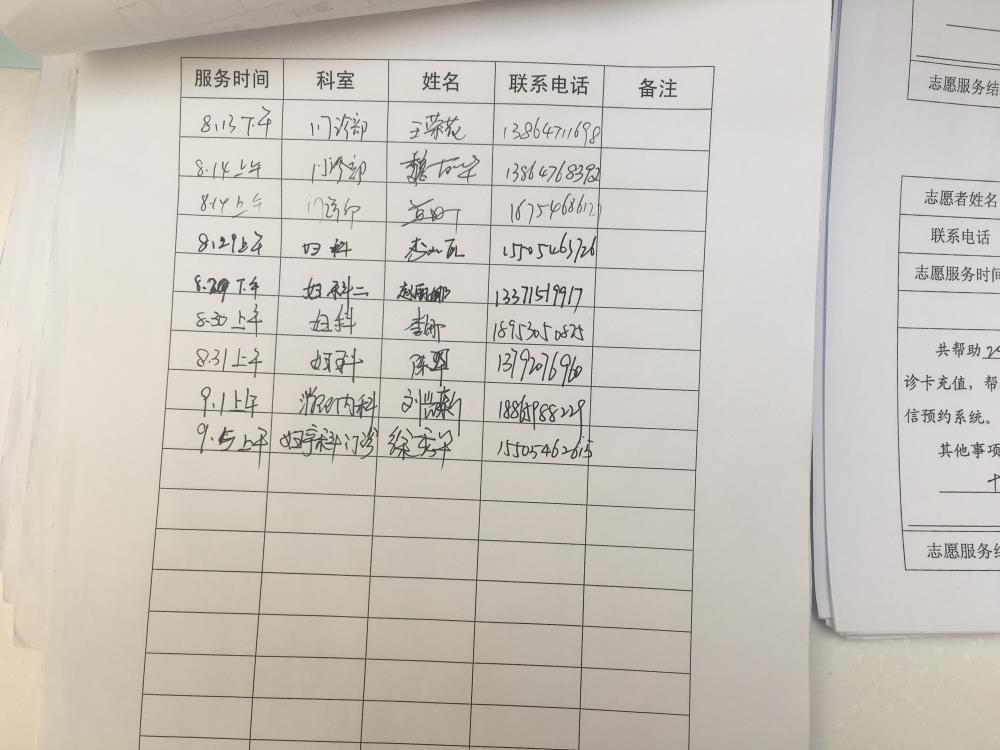 服务时间 科室 姓名 联系电话 备注
8.13下午 门诊部 王荣花 13864711698
8.14上午 门诊部 13864768392
8.14上午 门诊部
8.29上午 妇科 15505463726
下午 妇科二 赵丽娜 13371519917
8.30上午 妇科 李娜 18953050825
8.31上午 妇科 陈 13792076960
9.1上午 消化内科 刘
9.5上午 妇产科门诊 徐秀华 15505462615
志愿服务结
志愿者姓名
联系电话
志愿服务时间
共帮助
诊卡充值，帮
信预约系统。
其他事项
志愿服务结